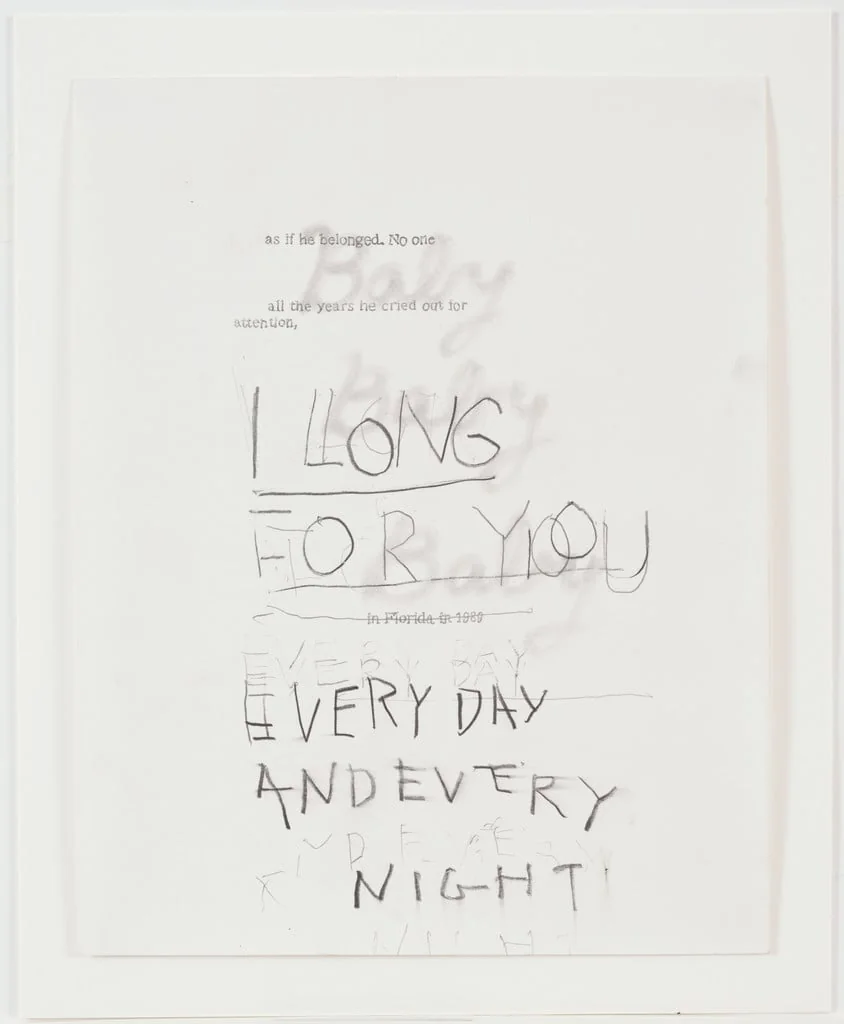 as if he belonged. No one
Baby
all the years he cried out for
attention,
Baby
I LONG
FOR YOU
Baby
in Florida in 1989
EVERY DAY
EVERY DAY
AND EVERY
AND EVERY
NIGHT
NIGHT